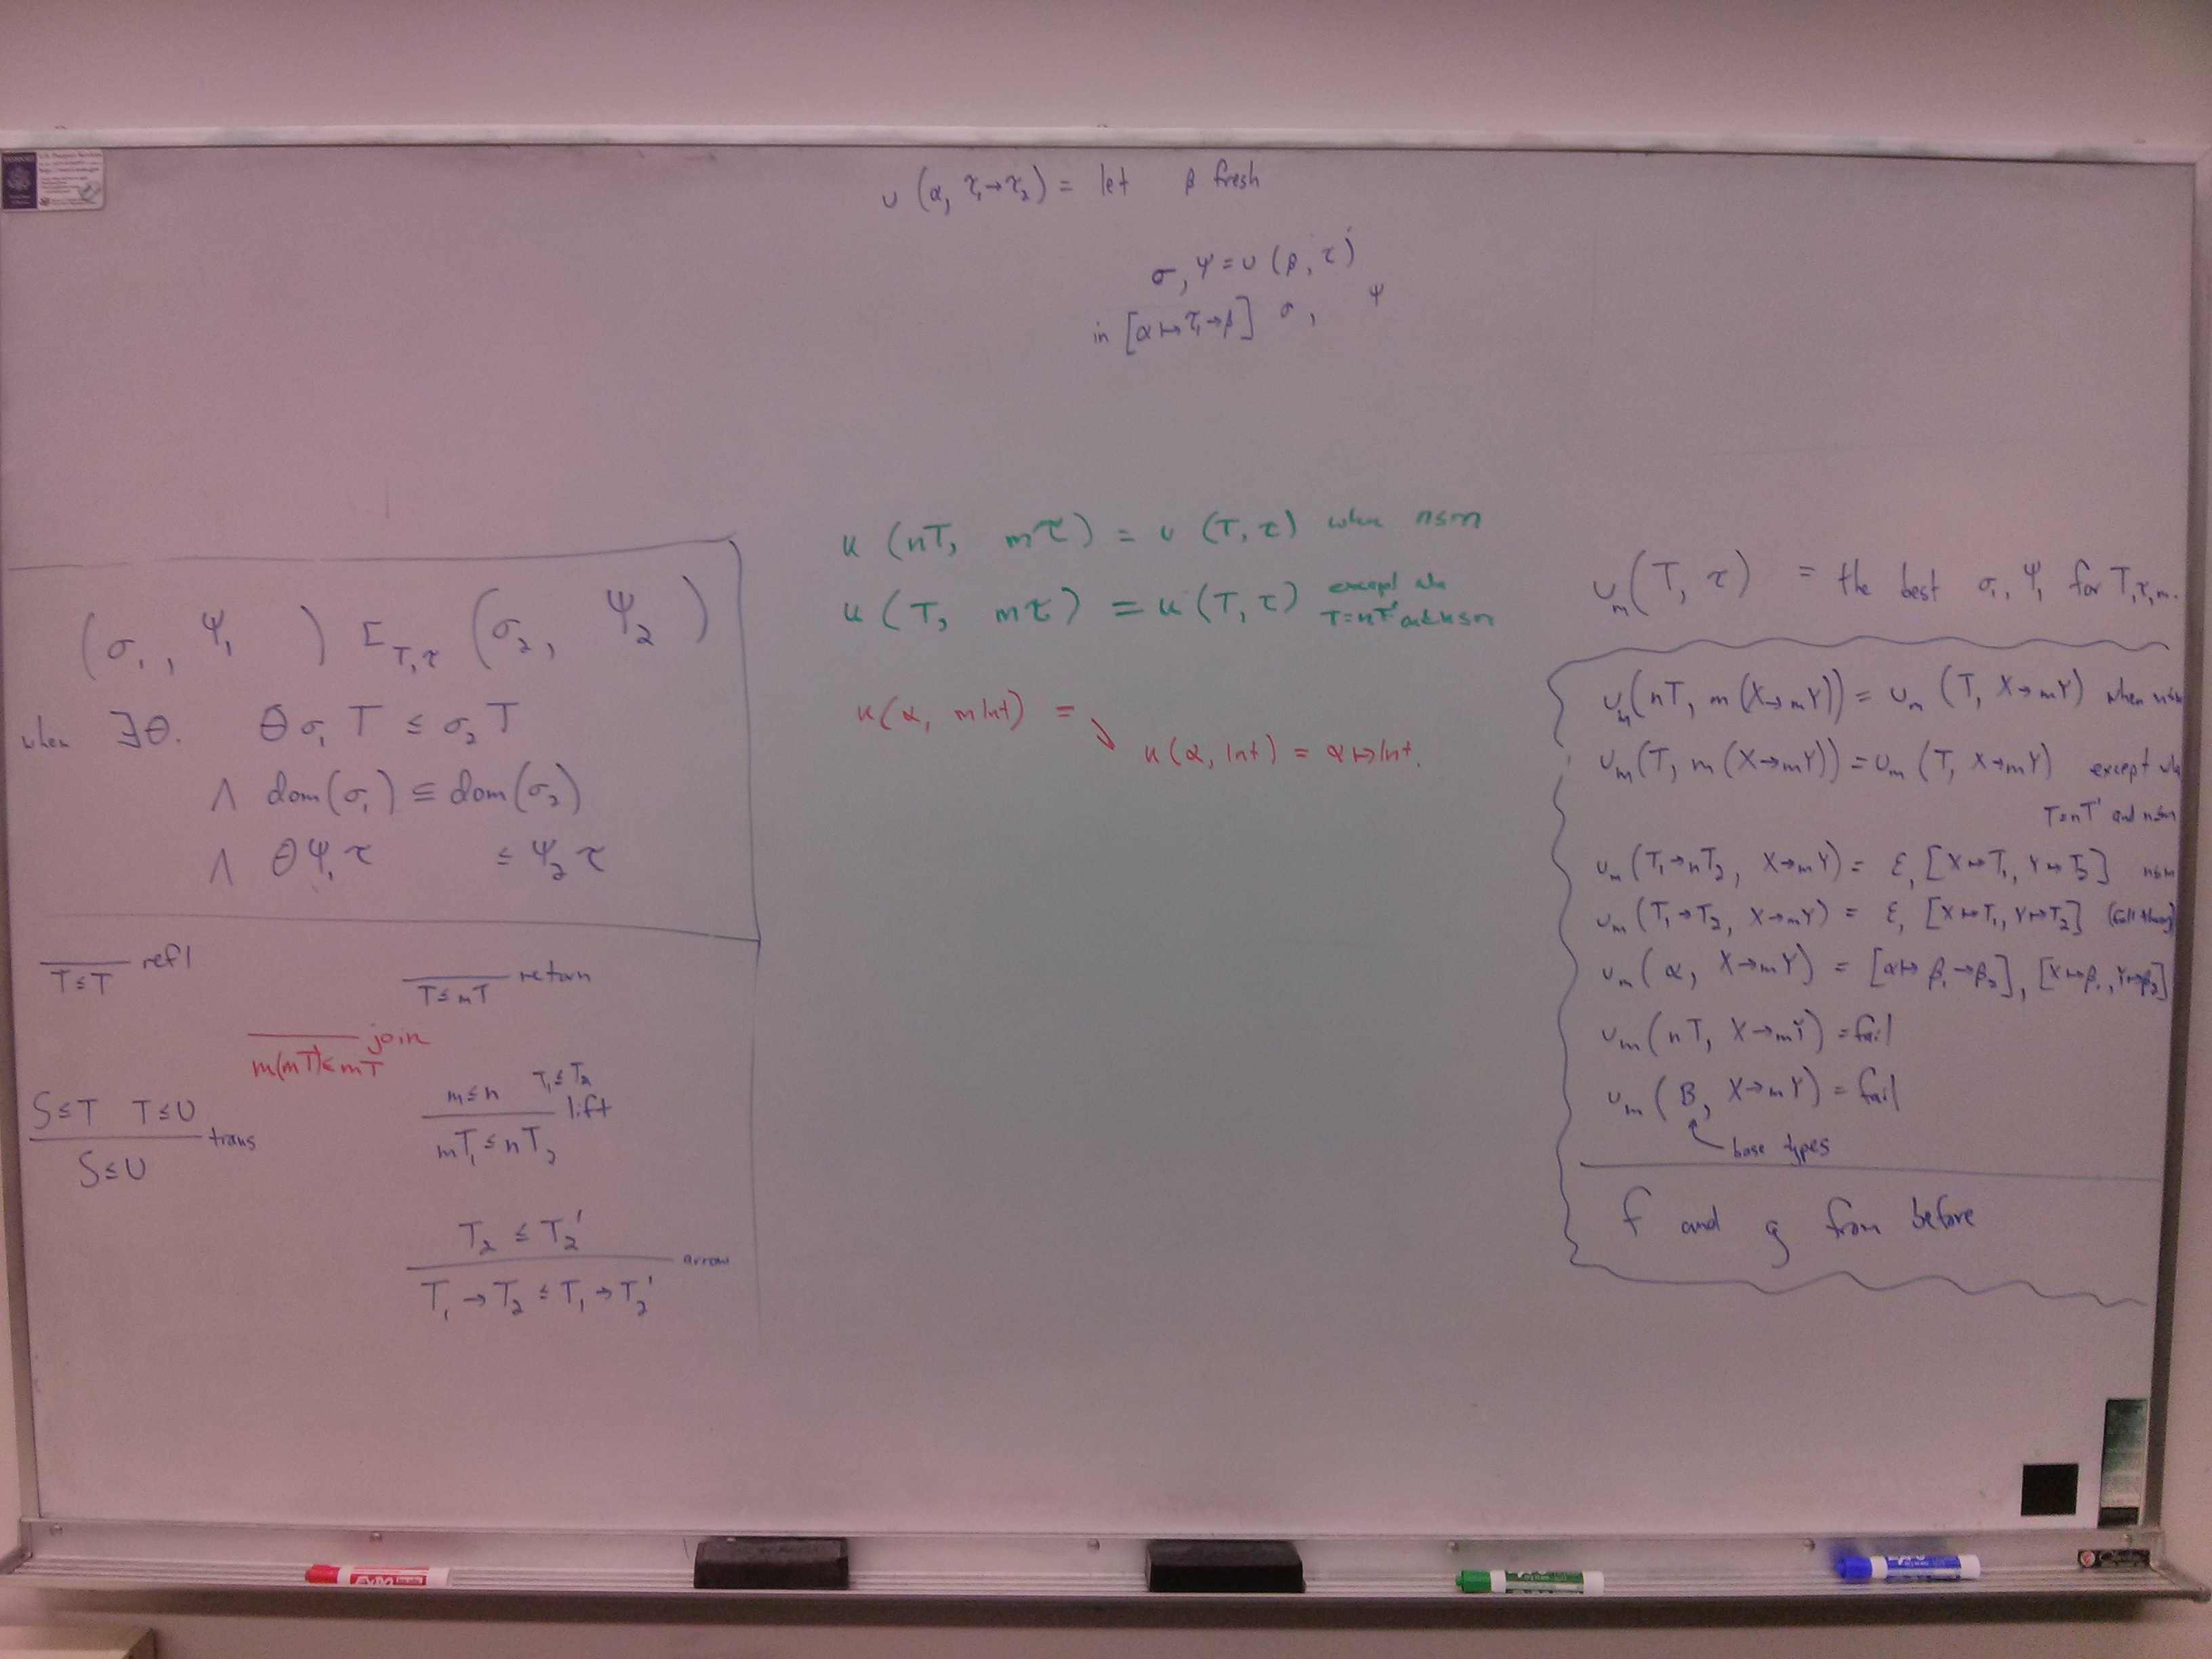 υ (α, τ₁→τ₂) = let β fresh
σ, Ψ = υ (β, τ)
in [α ↦ τ₁→β] σ, Ψ
(σ₁, Ψ₁) ⊑ T,τ (σ₂, Ψ₂)
when ∃θ. θ σ₁ T ≤ σ₂ T
∧ dom(σ₁) ⊆ dom(σ₂)
∧ θ Ψ₁ τ ≤ Ψ₂ τ
T ≤ T refl
T ≤ mT return
m(mT) ≤ mT join
S ≤ T T ≤ U
S ≤ U trans
m ≤ n T₁ ≤ T₂
mT₁ ≤ nT₂ lift
T₂ ≤ T₂'
T₁ → T₂ ≤ T₁ → T₂' arrow
u (nT, mτ) = υ (T, τ) when n≤m
u (T, mτ) = u (T, τ) except when
T=nT' and n≤m
u(α, m Int) =
u(α, Int) = α ↦ Int.
υₘ(T, τ) = the best σ₁, Ψ₁ for T,τ,m.
υₘ(nT, m(X→mY)) = υₘ (T, X→mY) when n≤m
υₘ(T, m(X→mY)) = υₘ (T, X→mY) except when
T=nT' and n≤m
υₘ(T₁→nT₂, X→mY) = ε, [X↦T₁, Y↦T₂] n≤m
υₘ(T₁→T₂, X→mY) = ε, [X↦T₁, Y↦T₂]
υₘ(α, X→mY) = [α↦β₁→β₂], [X↦β₁, Y↦β₂]
υₘ(nT, X→mY) = fail
υₘ(B, X→mY) = fail
base types
f and g from before
EXPO